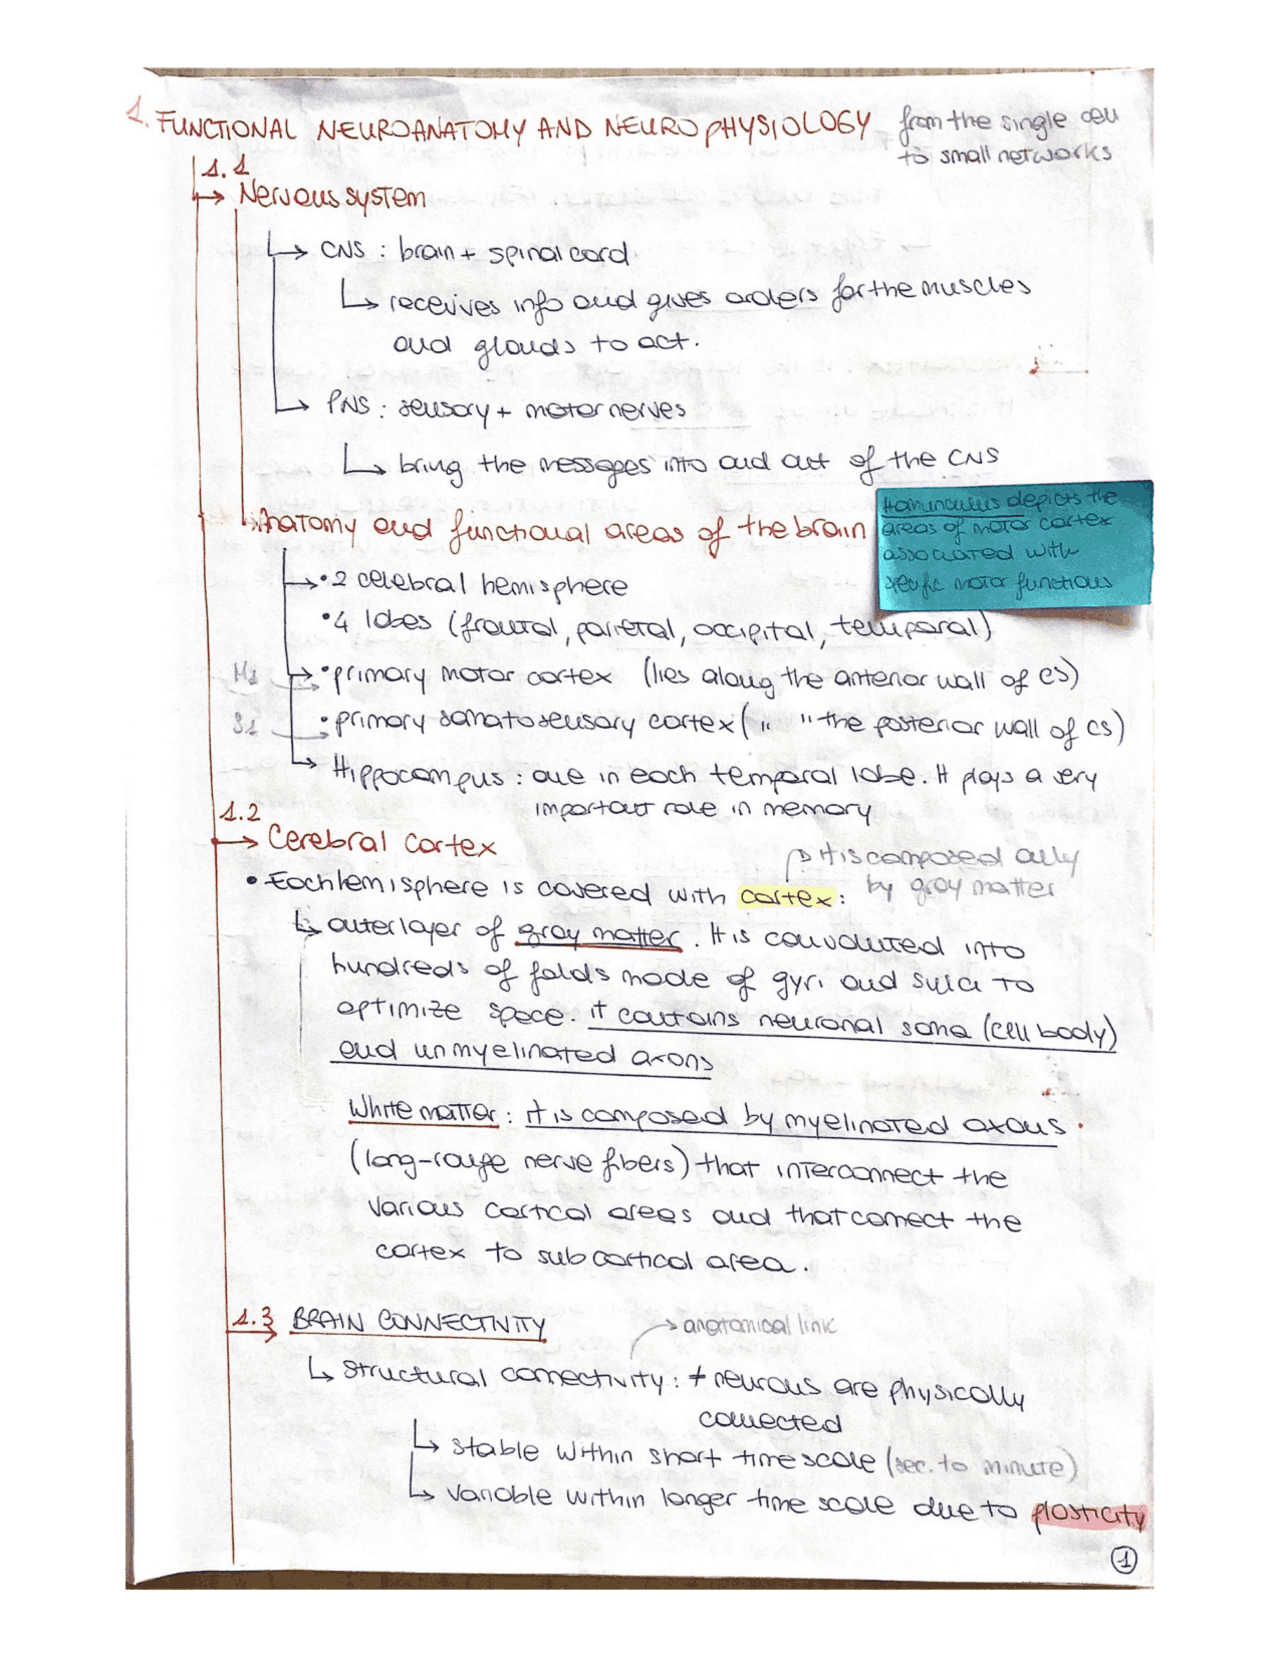 1. FUNCTIONAL NEUROANATOMY AND NEUROPHYSIOLOGY from the single cell
to small networks
1.1
→ Nervous system
↳ CNS : brain + spinal cord
↳ receives info and gives orders for the muscles
and glands to act.
↳ PNS : sensory + motor nerves
↳ bring the messages into and out of the CNS
Homunculus depicts the
areas of motor cortex
associated with
specific motor functions
↳ Anatomy and functional areas of the brain
→ • 2 celebral hemisphere
• 4 lobes (frontal, parietal, occipital, temporal)
M1 → • primary motor cortex (lies along the anterior wall of CS)
S1 • primary somatosensory cortex ( " " the posterior wall of CS)
→ Hippocampus : one in each temporal lobe. It plays a very
important role in memory
1.2
→ Cerebral cortex
→ It is composed only
by gray matter
• Each hemisphere is covered with cortex :
↳ outer layer of gray matter. It is convoluted into
hundreds of folds made of gyri and sulci to
optimize space. it contains neuronal soma (cell body)
and unmyelinated axons
White matter : it is composed by myelinated axons.
(long-range nerve fibers) that interconnect the
various cortical areas and that connect the
cortex to subcortical area.
1.3 BRAIN CONNECTIVITY
→ anatomical link
↳ Structural connectivity : ≠ neurons are physically
connected
↳ stable within short time scale (sec. to minute)
↳ variable within longer time scale due to plasticity
1